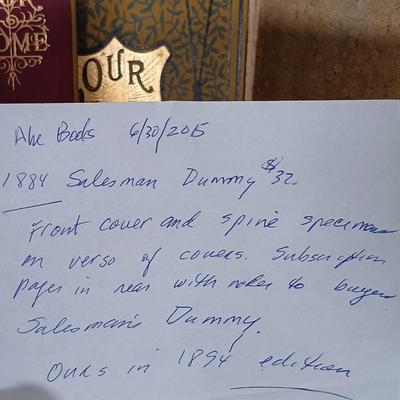 OUR
OME
OUR
Abe Books 6/30/2015
1884 Salesman Dummy $32.
Front cover and spine specimens
on verso of covers. Subscription
pages in rear with notes to buyers
Salesman's Dummy.
Ours in 1894 edition